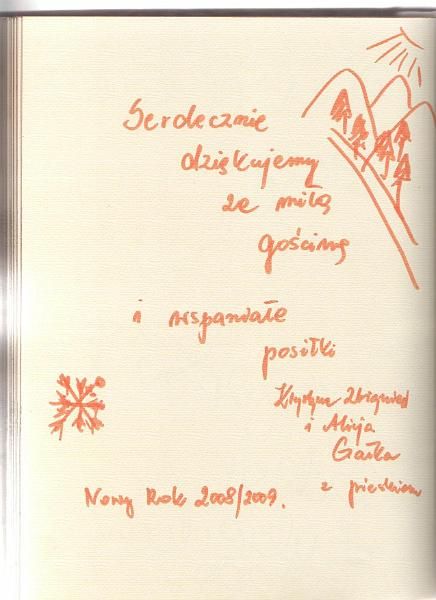 Serdecznie
dziękujemy
za miłą
gościnę
i wspaniałe
posiłki
Krystyna Zbigniew
i Alicja
Gałka
z pieskiem
Nowy Rok 2008/2009.